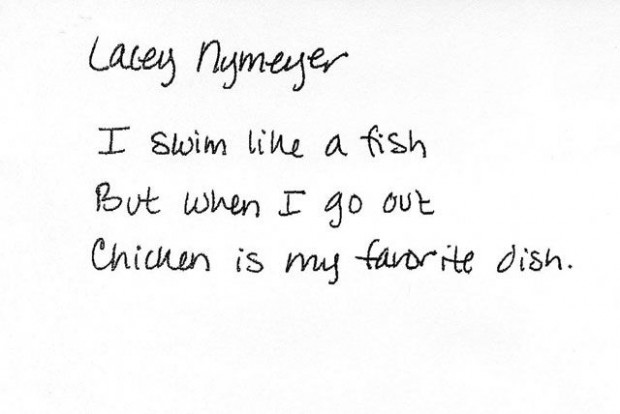 Lacey Nymeyer
I swim like a fish
But when I go out
Chicken is my favorite dish.